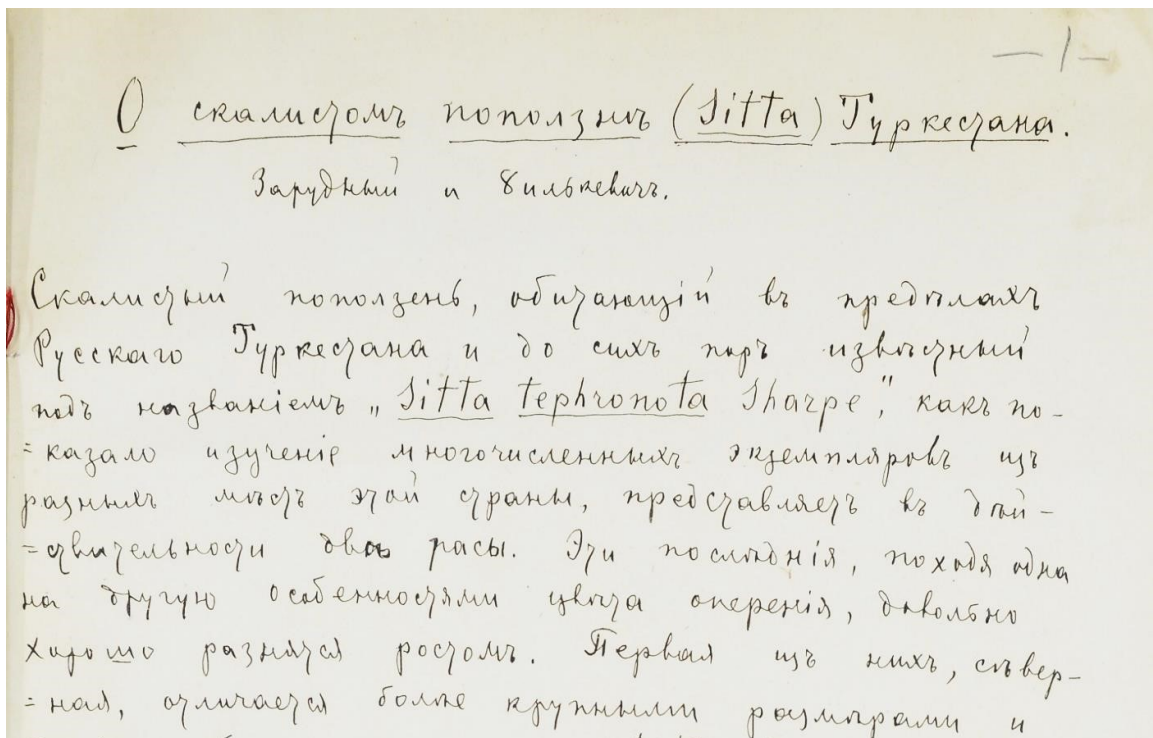 — 1 —
О скалистомъ поползнѣ (Sitta) Туркестана.
Зарудный и Билькевичъ.
Скалистый поползень, обитающій въ предѣлахъ
Русскаго Туркестана и до сихъ поръ извѣстный
подъ названіемъ „Sitta tephronota Sharpe", какъ по-
=казало изученіе многочисленныхъ экземпляровъ изъ
разныхъ мѣстъ этой страны, представляетъ въ дѣй-
=ствительности двѣ расы. Эти послѣднія, походя одна
на другую особенностями цвѣта оперенія, довольно
хорошо разнятся ростомъ. Первая изъ нихъ, сѣвер-
=ная, отличается болѣе крупными размѣрами и